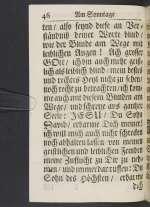 46 Am Sonntage
ten/ also seynd diese an Ver-
ständnuß deiner Worte blind/
wie der Blinde am Wege mit
leiblichen Augen! Ach grosser
GOtt/ ich bin auch mehr geist-
lich als leiblich blind/ meines bestes
und rechtes Heyl nicht zu
auch mit diesem Blinden am
Wege/ und schreye aus gantzer
Seele: JESU/ Du Sohn
David/ erbarme Dich meiner!
ich will mich auch nicht schrecken
noch abhalten lassen von meinen
geistlichen und leiblichen Feinden
meine Zuflucht zu Dir zu neh-
men/ und immerdar ruffen: Du
Sohn des Höchsten/ erbarme
dich